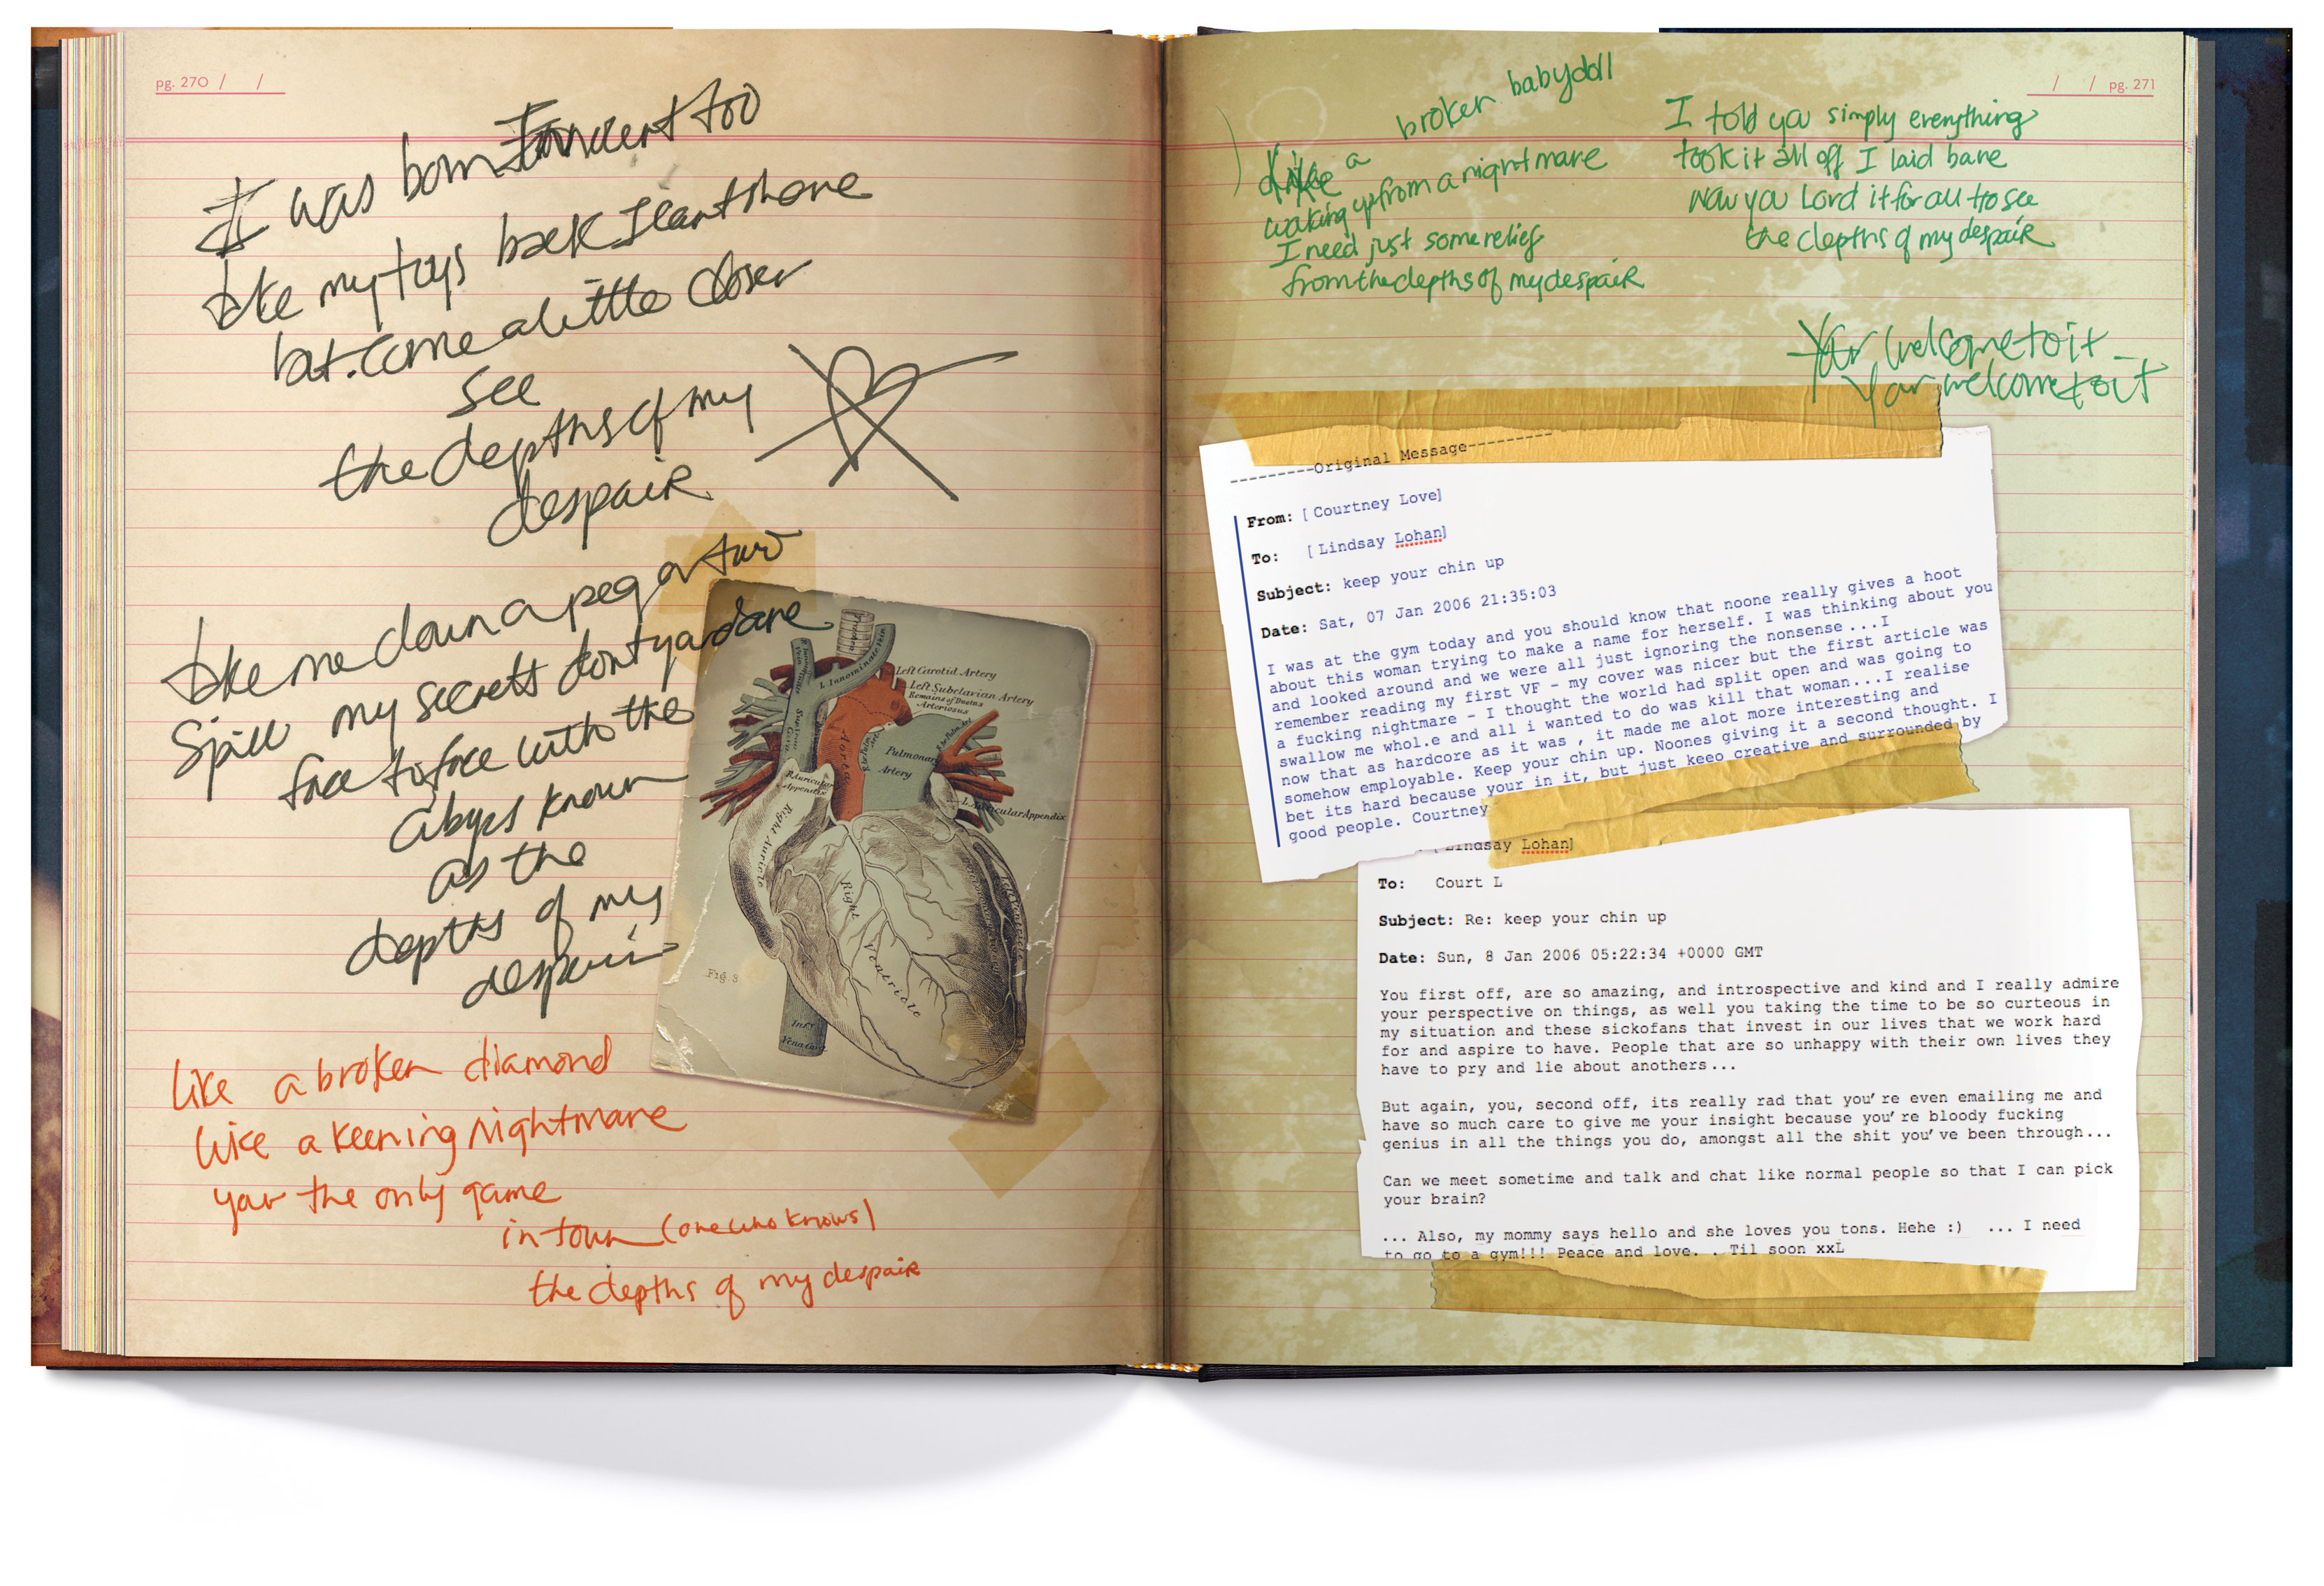 pg. 270 / /
I was born Innocent too
take my toys back I cant share
but. come a little closer
see
the depths of my
despair
take me down a peg or two
Spill my secrets dont ya dare
face to face with the
abyss known
as the
depths of my
despair
Left Carotid Artery
Left Subclavian Artery
Remains of Ductus
Arteriosus
L. Innominate
Aorta
Pulmonary
Artery
R. Auricular
Appendix
L. Auricular Appendix
Right Auricle
Right
Ventricle
Fig. 3
Infr
Vena Cava
like a broken diamond
like a keening nightmare
your the only game
in town (one who knows)
the depths of my despair
/ / pg. 271
broken babydoll
like a
waking up from a nightmare
I need just some relief
from the depths of my despair
I told you simply everything
took it all off I laid bare
now you Lord it for all to see
the depths of my despair
Your welcome to it
Your welcome to it
--------Original Message---------
From: [ Courtney Love]
To: [ Lindsay Lohan]
Subject: keep your chin up
Date: Sat, 07 Jan 2006 21:35:03
I was at the gym today and you should know that noone really gives a hoot
about this woman trying to make a name for herself. I was thinking about you
and looked around and we were all just ignoring the nonsense ...I
remember reading my first VF - my cover was nicer but the first article was
a fucking nightmare - I thought the world had split open and was going to
swallow me whol.e and all i wanted to do was kill that woman...I realise
now that as hardcore as it was , it made me alot more interesting and
somehow employable. Keep your chin up. Noones giving it a second thought. I
bet its hard because your in it, but just keeo creative and surrounded by
good people. Courtney
[ Lindsay Lohan]
To: Court L
Subject: Re: keep your chin up
Date: Sun, 8 Jan 2006 05:22:34 +0000 GMT
You first off, are so amazing, and introspective and kind and I really admire
your perspective on things, as well you taking the time to be so curteous in
my situation and these sickofans that invest in our lives that we work hard
for and aspire to have. People that are so unhappy with their own lives they
have to pry and lie about anothers...
But again, you, second off, its really rad that you're even emailing me and
have so much care to give me your insight because you're bloody fucking
genius in all the things you do, amongst all the shit you've been through...
Can we meet sometime and talk and chat like normal people so that I can pick
your brain?
... Also, my mommy says hello and she loves you tons. Hehe :) ... I need
to go to a gym!!! Peace and love. . Til soon xxL